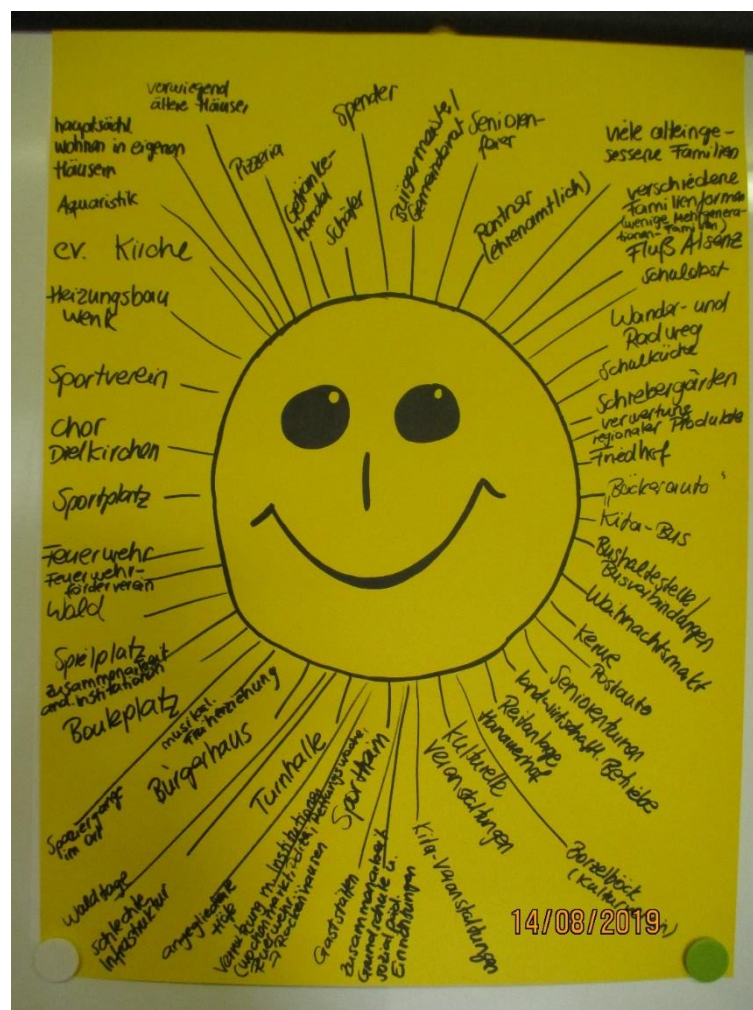 vorwiegend
ältere Häuser
hauptsächl.
wohnen in eigenen
Häusern
Aquaristik
ev. Kirche
Heizungsbau
Wenk
Sportverein
Chor
Dielkirchen
Sportplatz
Feuerwehr
Feuerwehr-
förderverein
Wald
Spielplatz
Zusammenarbeit
and. Institutionen
Bouleplatz
Spaziergänge
im Ort
Waldtage
schlechte
Infrastruktur
musikal.
Früherziehung
Bürgerhaus
Turnhalle
angegliederte
Höfe
Vernetzung m. Institutionen
Feuerwehr
→ Rockenhausen
Gaststätten
Sportheim
Zusammenarbeit
Grundschule u.
sozial päd.
Einrichtungen
Kita-Veranstaltungen
Kulturelle
Veranstaltungen
Reitanlage
landwirtschaftl. Betriebe
Seniorenturnen
Postauto
Kerwe
Weihnachtsmarkt
Bushaltestelle/
Busverbindungen
Kita-Bus
"Bäckerauto"
Friedhof
Verwertung
regionaler Produkte
Schrebergärten
Schulküche
Wander- und
Radweg
Schulobst
Fluß Alsenz
verschiedene
Familienformen
(wenige Mehrgenera-
tionen-Familien)
viele alteinge-
sessene Familien
Rentner
(ehrenamtlich)
Senioren-
feier
Bürgermeister/
Gemeinderat
Spender
Schäfer
Getränke-
handel
Pizzeria
14/08/2019